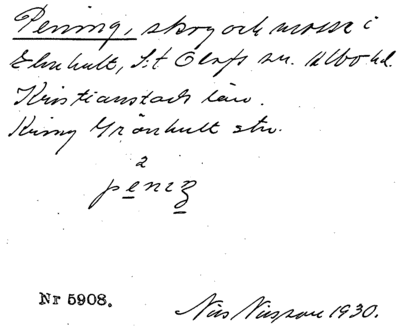 Pening, skog och mosse i
Elmhult, S:t Olofs sn. Albo hd.
Kristianstads län.
Kring Grönhult stn.
2
penıȥ
Nr 5908.
Nils Nilsson 1930.